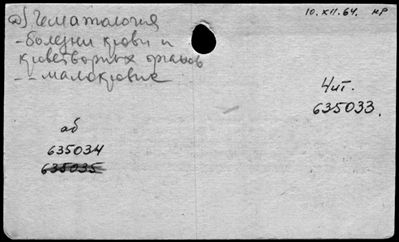 10.XII.64. нр
а) Гематология
- болезни крови и
кроветворных органов
- - малокровие
Чит.
635033.
аб
635034
635035